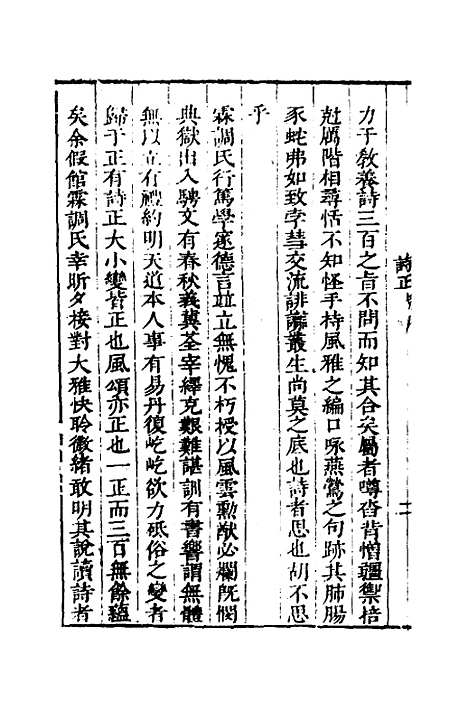 力于教養詩三百之旨不問而知其合矣屬者噂沓背憎彊禦掊
尅厲階相尋恬不知怪手持風雅之編口咏燕鶯之句跡其肺腸
豕蛇弗如致孛彗交流誹讟叢生尚莫之底也詩者思也胡不思
乎
霖調氏行篤學邃德言並立無愧不朽授以風雲勳猷必爛旣閔
典獄由入騁文有春秋義莫荃宰繹克艱難諶訓有書響謂無體
無以立有禮約明天道本人事有易丹復屹屹欲力砥俗之變者
歸于正有詩正大小變皆正也風頌亦正也一正而三百無餘蘊
矣余假館霖調氏幸昕夕接對大雅快聆微緒敢明其說讀詩者
詩正